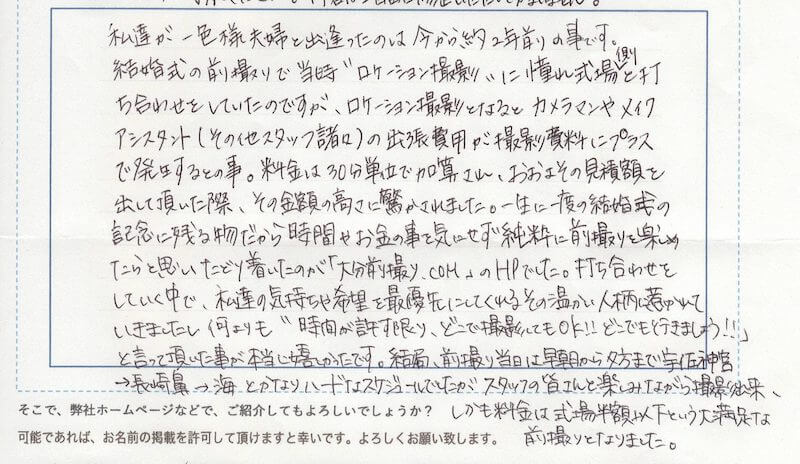 私達が一色様夫婦と出逢ったのは今から約2年前の事です。
結婚式の前撮りで当時"ロケーション撮影"に憧れ式場側と打
ち合わせをしていたのですが、ロケーション撮影となると カメラマンや メイク
アシスタント(その他スタッフ諸々)の出張費用が撮影費料にプラス
で発生するとの事。料金は30分単位で加算され、おおよその見積額を
出して頂いた際、その金額の高さに驚かされました。一生に一度の結婚式の
記念に残る物だから時間やお金の事を気にせず純粋に前撮りを楽しめ
たらと思いたどり着いたのが「大分前撮り.COM」のHPでした。打ち合わせを
していく中で、私達の気持ちや希望を最優先にしてくれるその温かい人柄に惹かれて
いきましたし何よりも"時間が許す限り、どこで撮影してもOK!!どこでも行きましょう!!"
と言って頂いた事が本当に嬉しかったです。結局、前撮り当日は早朝から夕方まで宇佐神宮
→長崎鼻→海 とかなりハードなスケジュールでしたが スタッフの皆さんと楽しみながら撮影出来、
そこで、弊社ホームページなどで、ご紹介してもよろしいでしょうか? しかも料金は式場半額以下という大満足な
可能であれば、お名前の掲載を許可して頂けますと幸いです。よろしくお願い致します。 前撮りとなりました。